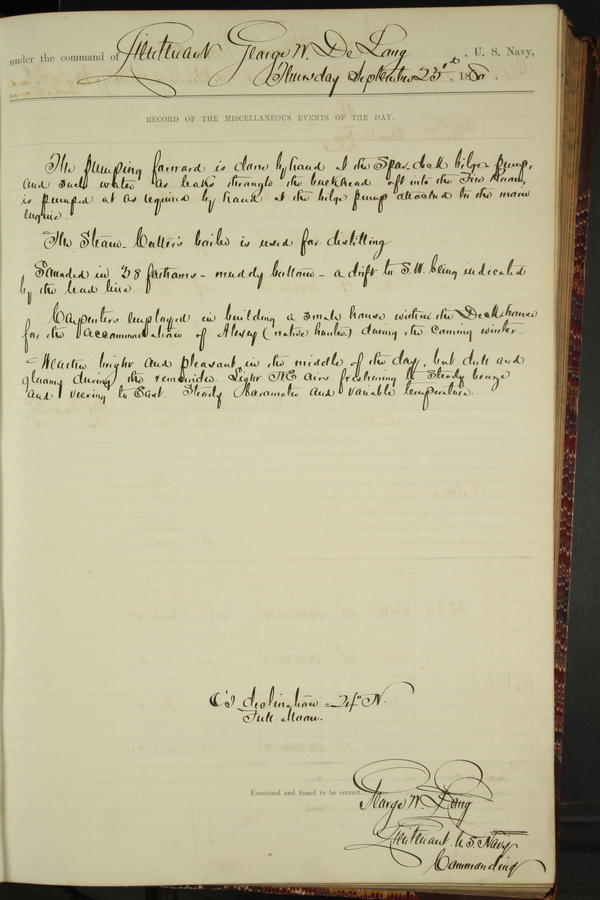 under the command of Lieutenant George W. De Long, U. S. Navy,
Thursday September 23rd, 1880.
RECORD OF THE MISCELLANEOUS EVENTS OF THE DAY.
The pumping forward is done by hand at the Spar-deck bilge pump,
and such water as leaks through the bulkhead aft into the Fire Room,
is pumped at as required by hand at the bilge pump attached to the main
engine.
The Steam-Cutter's boiler is used for distilling
Sounded in 38 fathoms - muddy bottom - a drift to S.W. being indicated
by the lead line.
Carpenters employed in building a small house within the Deckhouse
for the accommodation of Alexey (native hunter) during the coming winter.
Weather bright and pleasant in the middle of the day, but dull and
gloomy during the remainder. Light NE airs freshening to steady breeze
and veering to East. Steady barometer and variable temperature.
declination = N.
Full Moon.
Examined and found to be correct.
George W. De Long
Lieutenant U.S. Navy
Commanding